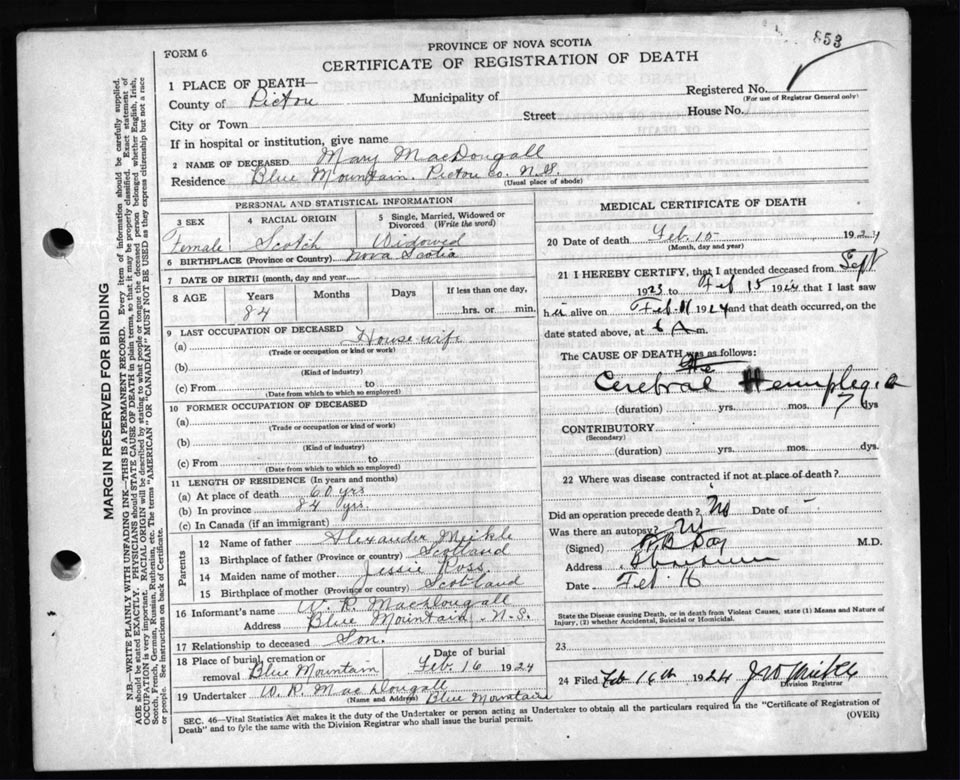 853
FORM 6
PROVINCE OF NOVA SCOTIA
CERTIFICATE OF REGISTRATION OF DEATH
1 PLACE OF DEATH—
County of Pictou Municipality of
Registered No.
(For use of Registrar General only)
City or Town Street House No.
If in hospital or institution, give name
2 NAME OF DECEASED Mary MacDougall
Residence Blue Mountain. Pictou Co. N.S.
(Usual place of abode)
PERSONAL AND STATISTICAL INFORMATION
3 SEX 4 RACIAL ORIGIN 5 Single, Married, Widowed or Divorced (Write the word)
Female Scotch Widowed
6 BIRTHPLACE (Province or Country) Nova Scotia
7 DATE OF BIRTH (month, day and year)
8 AGE Years Months Days If less than one day,
84 hrs. or min.
9 LAST OCCUPATION OF DECEASED
(a) House wife
(Trade or occupation or kind or work)
(b)
(Kind of industry)
(c) From to
(Date from which to which so employed)
10 FORMER OCCUPATION OF DECEASED
(a)
(Trade or occupation or kind of work)
(b)
(Kind of industry)
(c) From to
(Date from which to which so employed)
11 LENGTH OF RESIDENCE (In years and months)
(a) At place of death 60 yrs
(b) In province 84 yrs.
(c) In Canada (if an immigrant)
Parents
12 Name of father Alexander Meikle
13 Birthplace of father (Province or country) Scotland
14 Maiden name of mother Jessie Ross
15 Birthplace of mother (Province or country) Scotland
16 Informant's name W. R. MacDougall
Address Blue Mountain N.S.
17 Relationship to deceased Son.
18 Place of burial, cremation or removal Blue Mountain Date of burial Feb. 16 1924
19 Undertaker W. R. MacDougall
(Name and Address) Blue Mountain
MEDICAL CERTIFICATE OF DEATH
20 Date of death Feb. 15 1924
(Month, day and year)
21 I HEREBY CERTIFY, that I attended deceased from Sept
1923 to Feb 15 1924 that I last saw
her alive on Feb 11 1924 and that death occurred, on
date stated above, at 6 A m.
The CAUSE OF DEATH was as follows:
Cerebral Hemiplegia
(duration) yrs. mos. 7 dys
CONTRIBUTORY
(Secondary)
(duration) yrs. mos. dys.
22 Where was disease contracted if not at place of death?
Did an operation precede death? No Date of -
Was there an autopsy? No
(Signed) Day M.D.
Address
Date Feb 16
State the Disease causing Death, or in death from Violent Causes, state (1) Means and Nature of Injury, (2) whether Accidental, Suicidal or Homicidal.
23
24 Filed Feb 16th 1924 J W Meikle
Division Registrar
SEC. 46—Vital Statistics Act makes it the duty of the Undertaker or person acting as Undertaker to obtain all the particulars required in the "Certificate of Registration of
Death" and to fyle the same with the Division Registrar who shall issue the burial permit. (OVER)
MARGIN RESERVED FOR BINDING
N.B.—WRITE PLAINLY WITH UNFADING INK—THIS IS A PERMANENT RECORD. Every item of information should be carefully supplied.
AGE should be stated EXACTLY. PHYSICIANS should STATE CAUSE OF DEATH in plain terms, so that it may be properly classified. Exact statement of
OCCUPATION is very important. RACIAL ORIGIN will be described by stating to what people or tongue the deceased person belonged whether English, Irish,
Scotch, French, German, Russian, Ruthenian, etc. The terms "AMERICAN" OR "CANADIAN" MUST NOT BE USED as they express citizenship but not a race
or people. See instructions on back of Certificate.